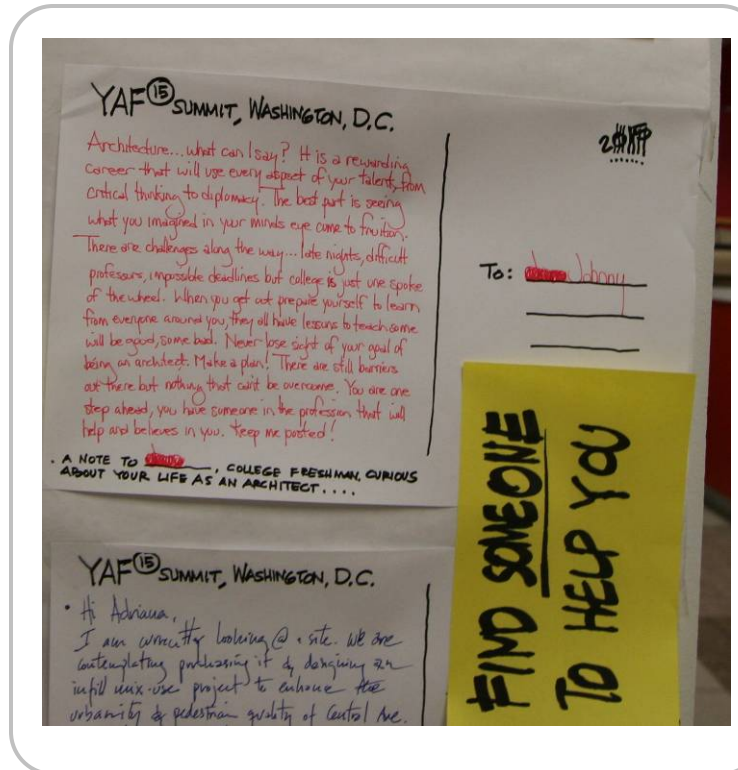 YAF 15 SUMMIT, WASHINGTON, D.C.
Architecture... what can I say? It is a rewarding
career that will use every aspect of your talents, from
critical thinking to diplomacy. The best part is seeing
what you imagined in your minds eye come to fruition.
There are challenges along the way... late nights, difficult
professors, impossible deadlines but college is just one spoke
of the wheel. When you get out prepare yourself to learn
from everyone around you, they all have lessons to teach some
will be good, some bad. Never lose sight of your goal of
being an architect. Make a plan! There are still barriers
out there but nothing that can't be overcome. You are one
step ahead, you have someone in the profession that will
help and believes in you. Keep me posted!
. A NOTE TO , COLLEGE FRESHMAN, CURIOUS
ABOUT YOUR LIFE AS AN ARCHITECT....
To: Johnny
FIND SOMEONE
TO HELP YOU
YAF 15 SUMMIT, WASHINGTON, D.C.
• Hi Adriana,
I am currently looking @ a site. We are
contemplating purchasing it & designing an
infill mix-use project to enhance the
urbanity & pedestrian quality of Central Ave.